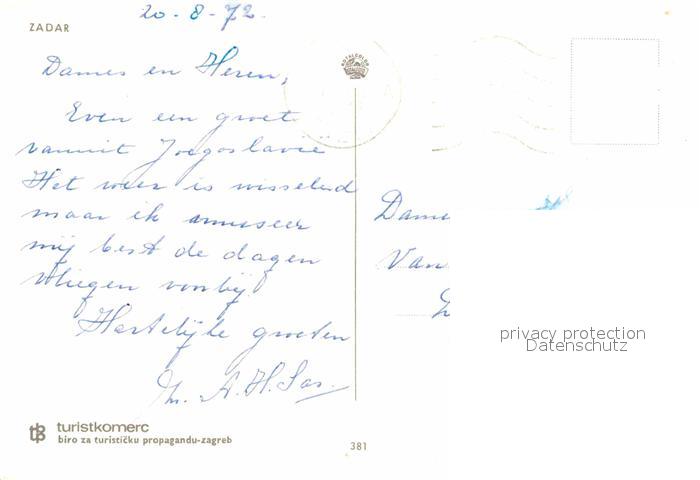 20-8-72.
ZADAR
Dames en Heren,
Even een groet
vanuit Joegoslavie
Het weer is wisselend
maar ik amuseer
mij best de dagen
vliegen voorbij
Hartelijke groeten
A. H. Sas.
Dame
Van
privacy protection
Datenschutz
turistkomerc
biro za turističku propagandu-zagreb
381